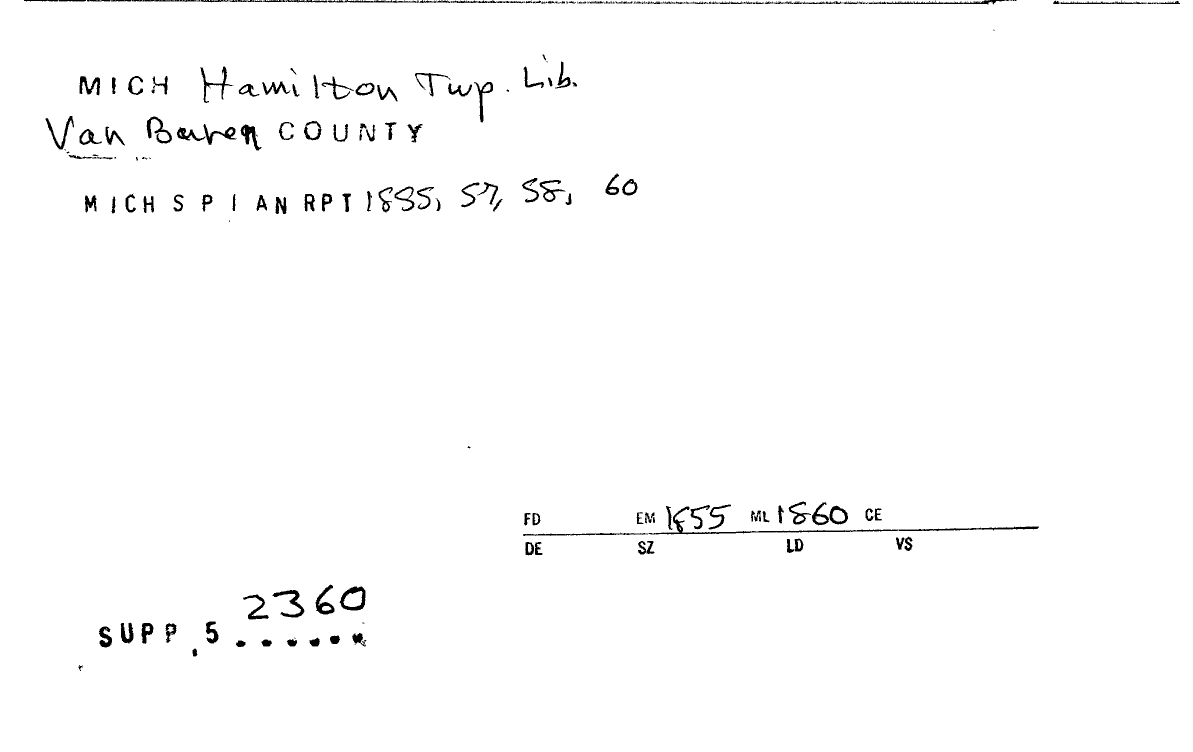 MICH Hamilton Twp. Lib.
Van Buren COUNTY
MICH S P I AN RPT 1855, 57, 58, 60
FD EM 1855 ML 1860 CE
DE SZ LD VS
2360
SUPP.5 ......